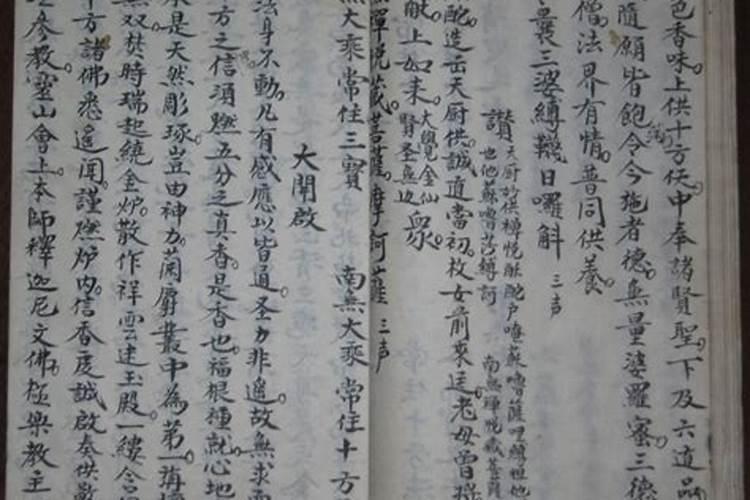 色香味上供十方仸中奉諸賢聖下及六道品
隨願皆飽令今施者德無量婆羅蜜三德
僧法界有情普同供養
曩三婆縛韈日囉斛三声
讃天厨妙供禅悦酥酡户唵蘇嚕薩哩縛怛他
也他蘇嚕莎縛訶 南無禅悦藏菩薩
酡造岳天厨供誠道當初枚女前來送老母曽
献上如来大覺金仙賢圣無边眾
無禪悦藏菩薩摩訶薩三声
無大乘常住三寳 南無大乘常住十方
大開啟
法身不動凡有感應以皆通圣力非遥故無求
方之信須燃五分之真香是香也福根種就心地
是天然彫琢豈由神力菌麝叢中為第一旃檀
無双焚時瑞起繞金炉散作祥雲連玉殿一縷含
十方諸佛悉遥聞謹燃炉内信香虔誠啟奉供
参教灵山會上本師釋迦尼文佛極樂教主